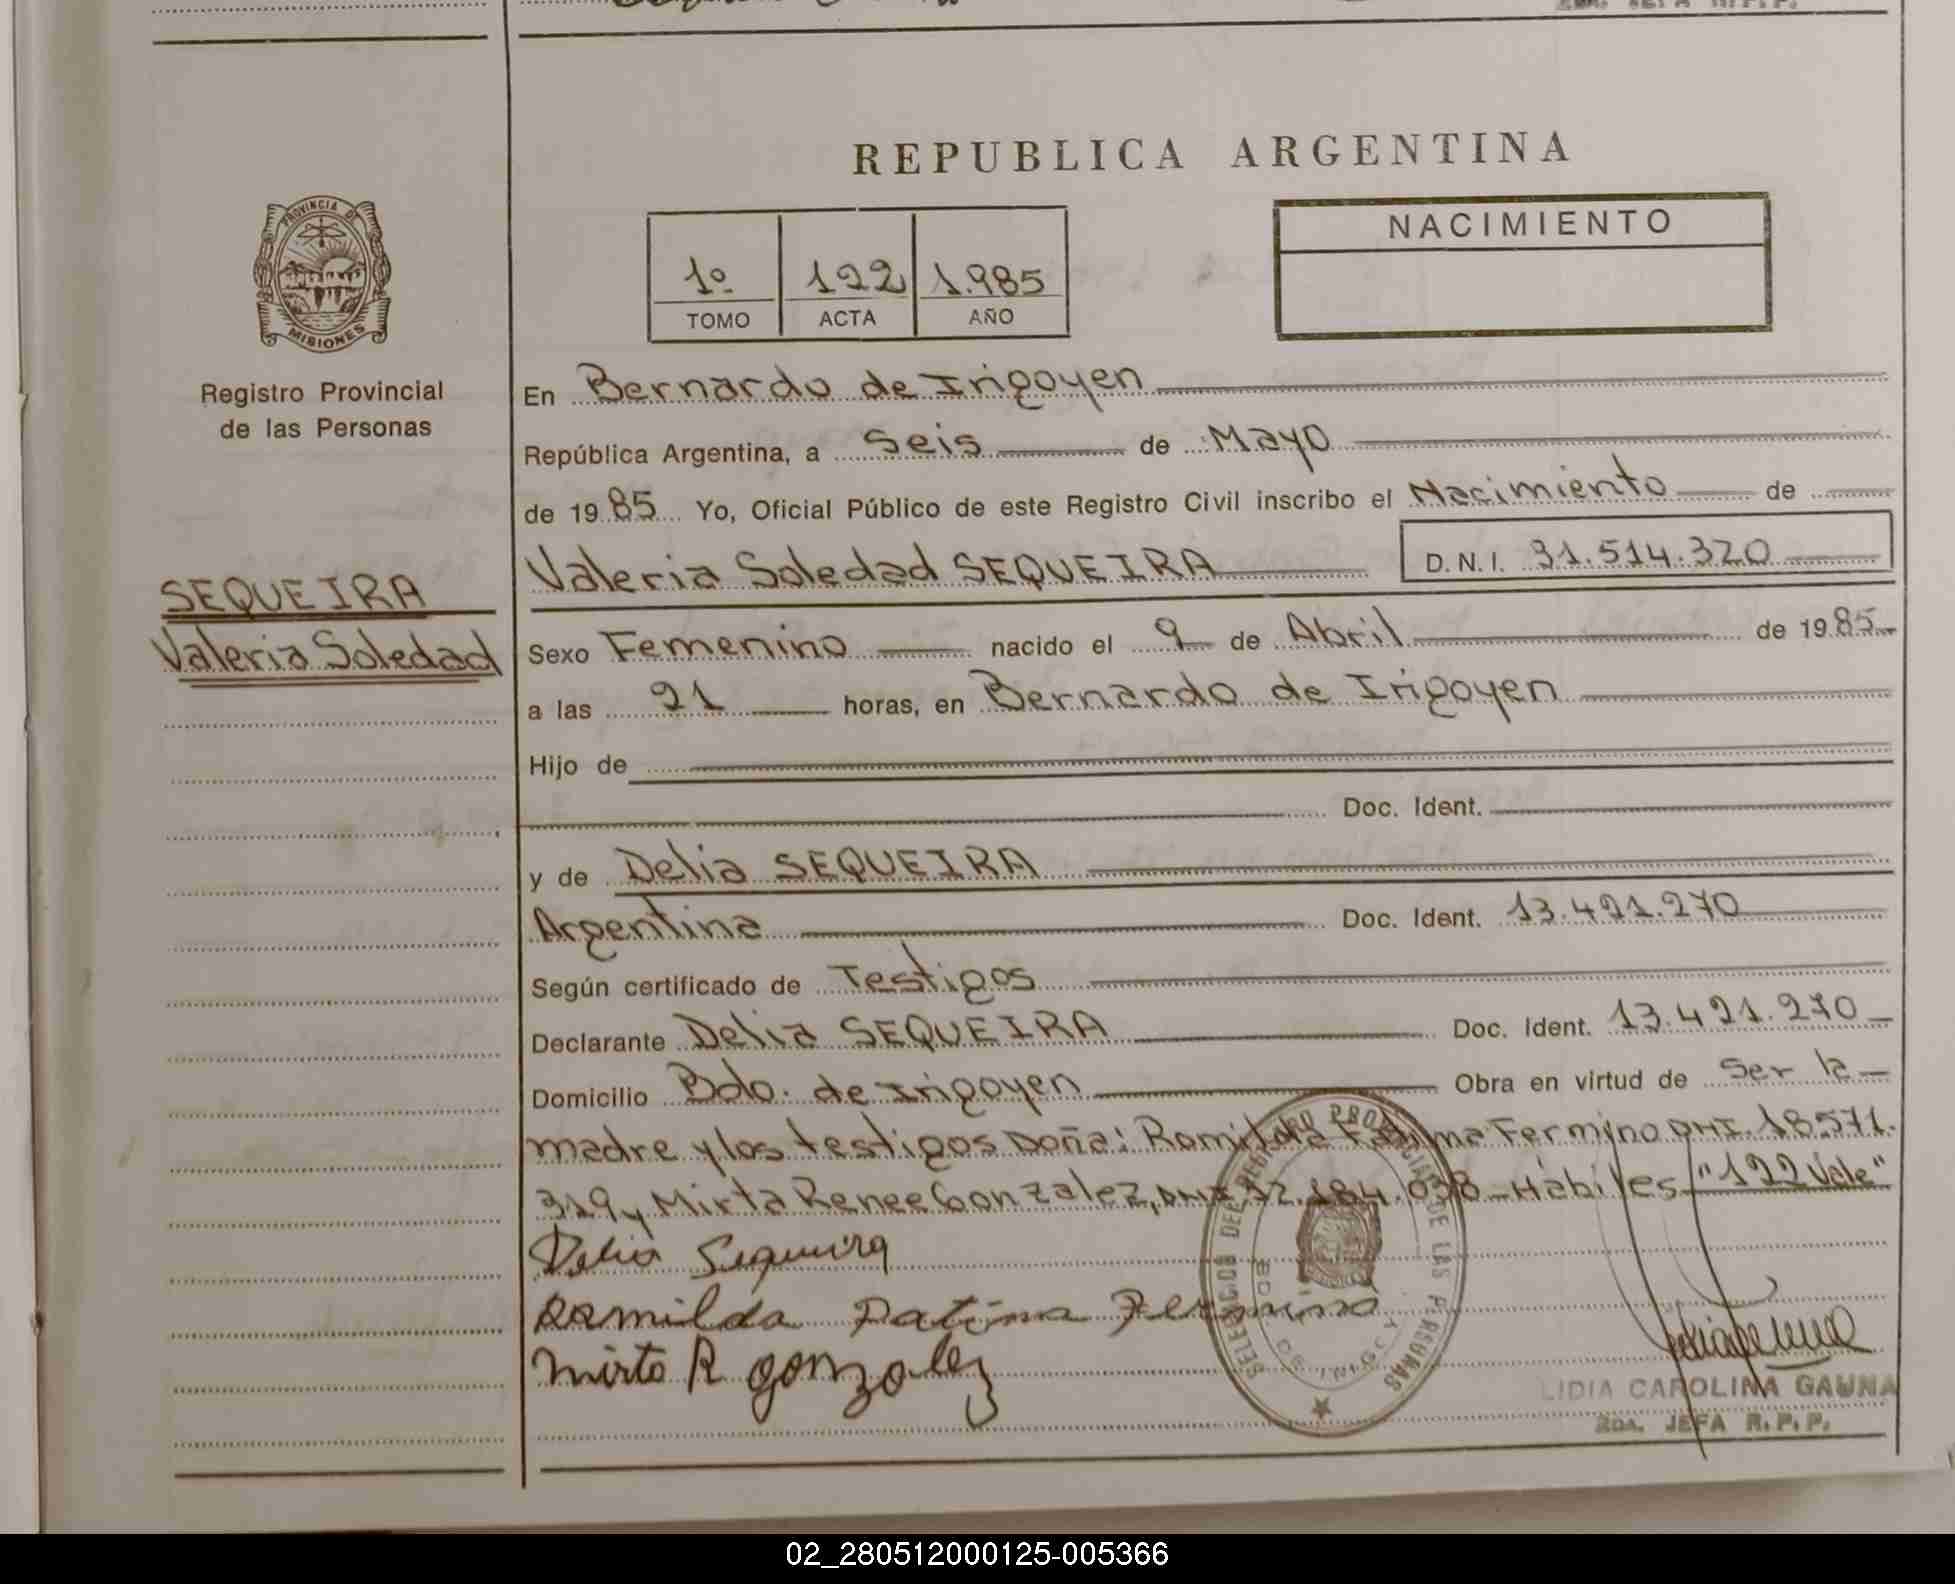 REPUBLICA ARGENTINA
PROVINCIA DE
MISIONES
Registro Provincial
de las Personas
SEQUEIRA
Valeria Soledad
1º 122 1.985
TOMO ACTA AÑO
NACIMIENTO
En Bernardo de Irigoyen
República Argentina, a Seis de Mayo
de 1985 Yo, Oficial Público de este Registro Civil inscribo el Nacimiento de
Valeria Soledad SEQUEIRA D.N.I. 31.514.320
Sexo Femenino nacido el 9 de Abril de 1985
a las 21 horas, en Bernardo de Irigoyen
Hijo de
Doc. Ident.
y de Delia SEQUEIRA
Argentina Doc. Ident. 13.421.270
Según certificado de Testigos
Declarante Delia SEQUEIRA Doc. Ident. 13.421.270
Domicilio Bdo. de Irigoyen Obra en virtud de Ser la
madre y los testigos Doña: Romilda Fatima Fermino DNI. 18.571.
319 y Mirta Renee Gonzalez, DNI 184.038 - Hábiles "122 Vale"
Delia Sequeira
Romilda Fatima Fermino
Mirta R gonzalez
DE LAS PERSONAS
LIDIA CAROLINA GAUNA
2DA. JEFA R.P.P.
02_280512000125-005366